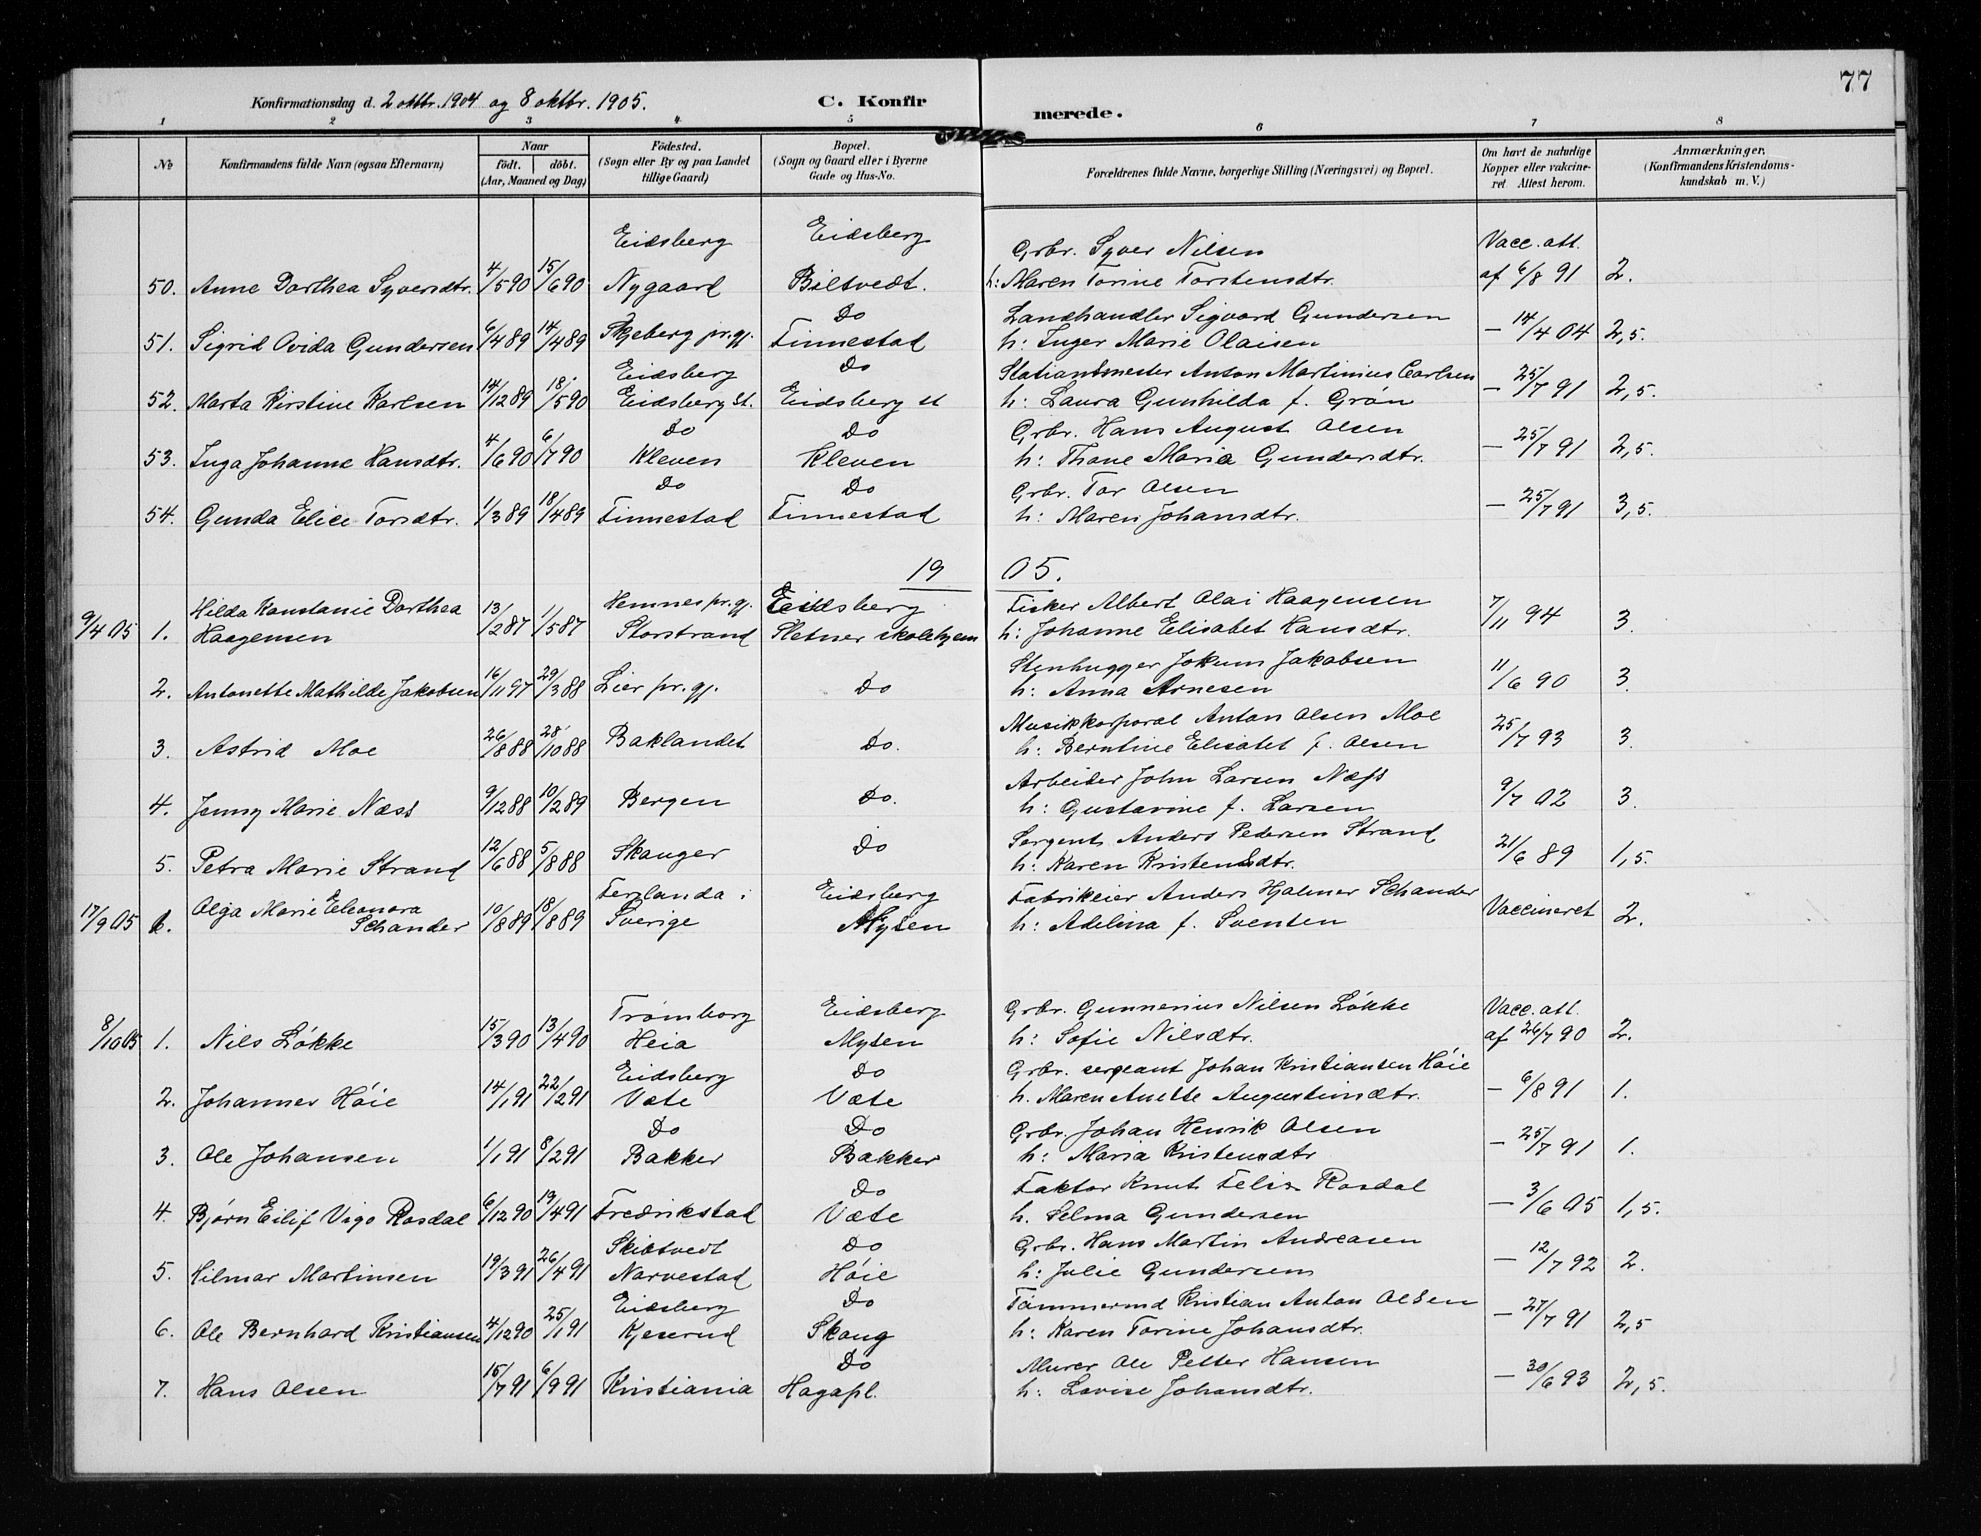 77
Konfirmationsdag d. 2 oktbr. 1904 og 8 oktbr. 1905. C. Konfirmerede.
1 2 3 4 5 6 7 8
№ Konfirmandens fulde Navn (ogsaa Efternavn) Naar født. døbt. (Aar, Maaned og Dag) Fødested. (Sogn eller By og paa Landet tillige Gaard) Bopæl. (Sogn og Gaard eller i Byerne Gade og Hus-No. Forældrenes fulde Navne, borgerlige Stilling (Næringsvei) og Bopæl. Om havt de naturlige Kopper eller vakcineret Attest herom. Anmærkninger. (Konfirmandens Kristendomskundskab m. V.)
Eidsberg Eidsberg Grbr. Syver Nilsen Vacc. att.
50. Anne Dorthea Syversdtr. 4/5 90 15/6 90 Nygaard Biltvedt. h: Maren Torine Torstensdtr. af 6/8 91 2.
Do Landhandler Sigvard Gundersen
51. Sigrid Ovida Gundersen 6/4 89 14/4 89 Skjeberg pr.gj. Finnestad h: Inger Marie Olaisen — 14/4 04 2,5.
Eidsberg Do Stationsmester Anton Martinius Carlsen
52. Marta Kirstine Karlsen 14/12 89 18/5 90 Eidsberg st. Eidsberg st h: Laura Gunhilda f. Grøn — 25/7 91 2,5.
Do Do Grbr. Hans August Olsen
53. Inga Johanne Hansdtr. 4/6 90 6/7 90 Kleven Kleven h: Thone Maria Gundersdtr. — 25/7 91 2,5.
Do Do Grbr. Tor Olsen
54. Gunda Elise Torsdtr. 1/3 89 18/4 89 Finnestad Finnestad h: Maren Johansdtr. — 25/7 91 3,5.
19 05.
Hilda Konstanie Dorthea Hemnes pr.gj. Eidsberg Fisker Albert Olai Haagensen
9/4 05 1. Haagensen 13/2 87 1/5 87 Storstrand Sletner skolehjem h: Johanne Elisabet Hansdtr. 7/11 94 3.
Stenhugger Jokum Jakobsen
2. Antonette Mathilde Jakobsen 16/11 97 29/3 88 Lier pr.gj. Do h: Anna Arnesen 11/6 90 3.
Musikkorporal Anton Olsen Moe
3. Astrid Moe 26/8 88 28/10 88 Baklandet Do. h: Berntine Elisabet f. Olsen 25/7 93 3.
Arbeider John Larsen Næss
4. Jenny Marie Næss 9/12 88 10/2 89 Bergen Do. h: Gustavine f. Larsen 9/7 02 3.
Do Sergent Anders Pedersen Strand
5. Petra Marie Strand 12/6 88 5/8 88 Skauger h: Karen Kristensdtr. 21/6 89 1,5.
Olga Marie Eleonora Ferglanda i Eidsberg Fabrikeier Anders Hjalmer Schander
17/9 05 6. Schander 10/8 89 18/8 89 Sverige Mysen h: Adelina f. Svensen Vaccineret 2.
Trømborg Eidsberg Grbr. Gunnerius Nilsen Løkke Vacc. att.
8/10 05 1. Nils Løkke 15/3 90 13/4 90 Heia Mysen h: Sofie Nilsdtr. af 26/7 90 2.
Eidsberg Do Grbr. sergeant Johan Kristiansen Høie
2. Johannes Høie 14/1 91 22/2 91 Væte Væte h. Maren Anette Augustinsdtr. — 6/8 91 1.
Do Do Grbr. Johan Henrik Olsen
3. Ole Johansen 1/1 91 8/2 91 Bakker Bakker h: Maria Kristensdtr — 25/7 91 1.
Do Faktor Knut Felix Rosdal
4. Bjørn Eilif Vigo Rosdal 6/12 90 19/4 91 Fredrikstad Væte h. Selma Gundersen — 3/6 05 1,5.
Skibtvedt Do Grbr. Hans Martin Andreasen
5. Hilmar Martinsen 19/3 91 26/4 91 Narvestad Høie h: Julie Gundersen — 12/7 92 2.
Eidsberg Do Tømmermd Kristian Anton Olsen
6. Ole Bernhard Kristiansen 4/12 90 25/1 91 Kjeserud Skaug h: Karen Torine Johansdtr. — 27/7 91 2,5
Do Murer Ole Petter Hansen
7. Hans Olsen 15/7 91 6/9 91 Kristiania Hagapl. h: Lovise Johansdtr. — 30/6 93 2,5.